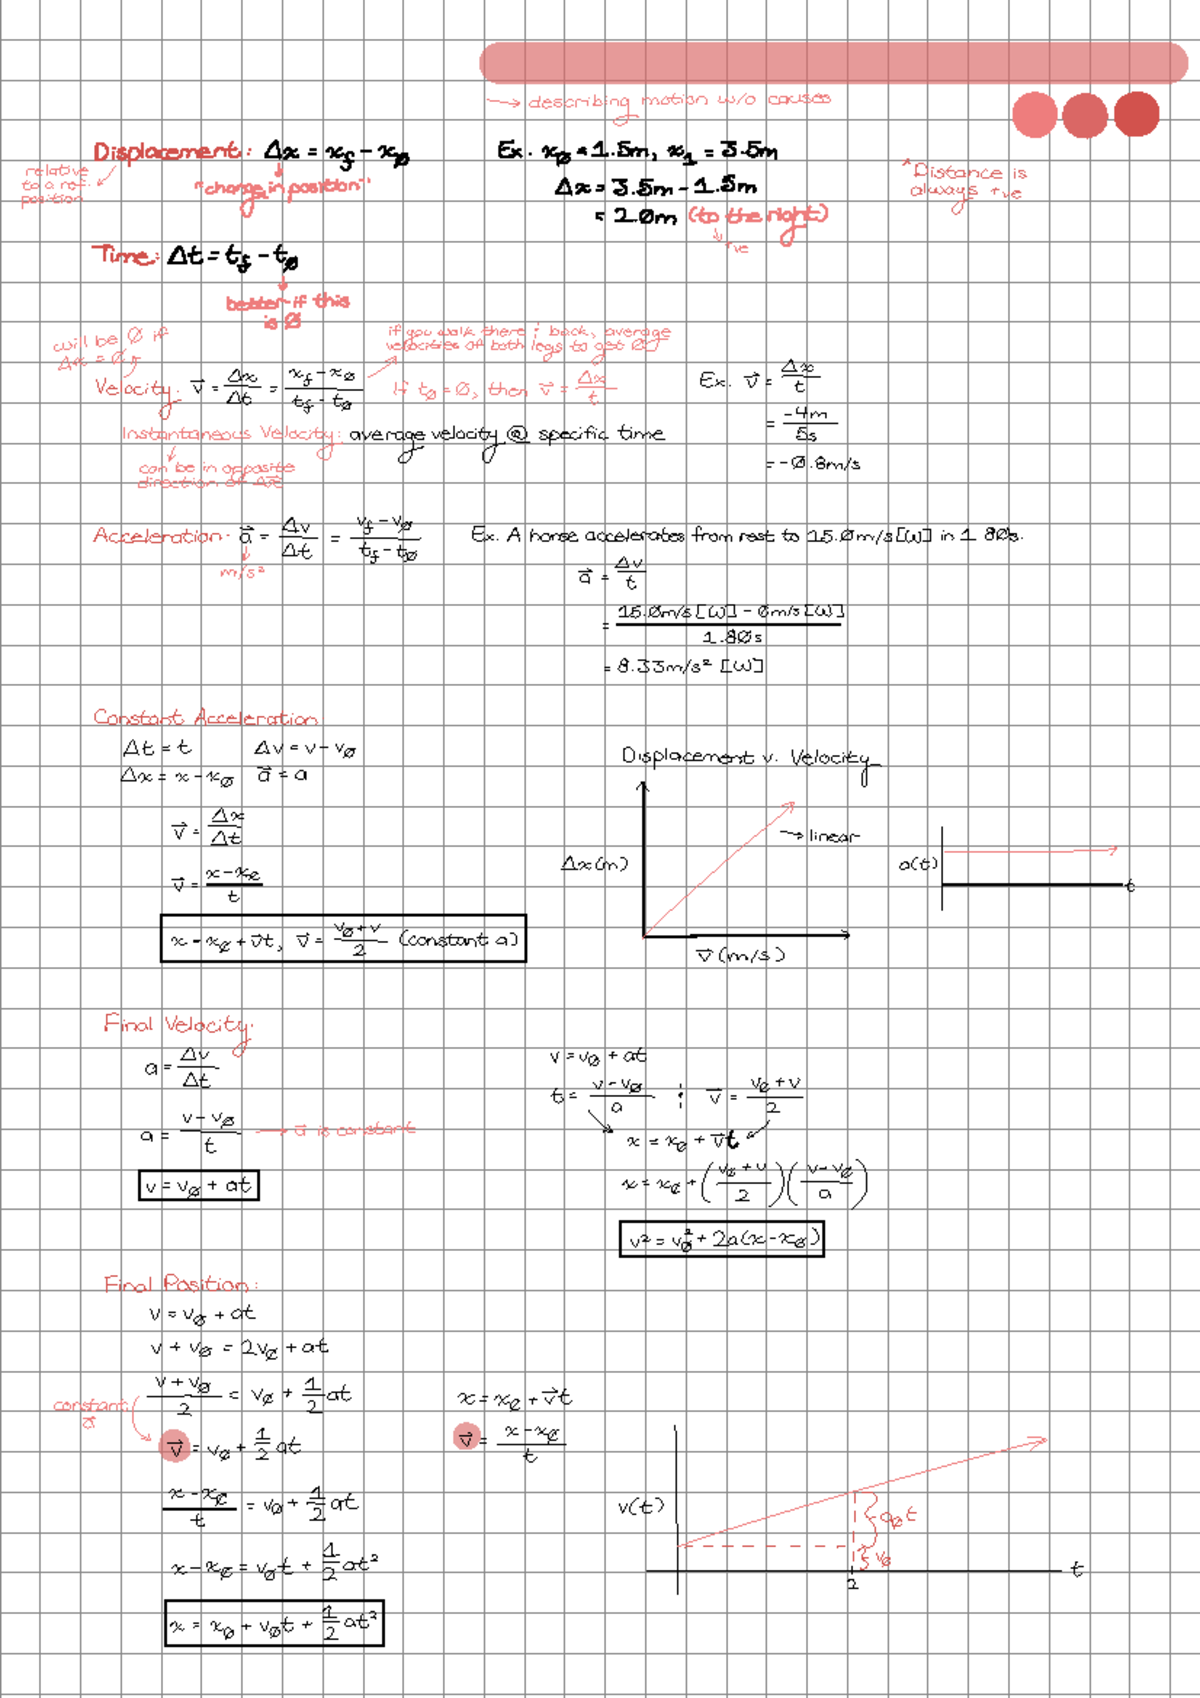 → describing motion w/o causes
Displacement: Δx = x_f − x_∅
relative to a ref. position
"change in position"
Ex. x_∅ = 1.5m, x_1 = 3.5m
Δx = 3.5m − 1.5m
= 2.0m (to the right)
+ve
*Distance is
always +ve
Time: Δt = t_f − t_∅
better if this
is ∅
will be ∅ if
Δx = ∅
if you walk there & back, average
velocities of both legs to get
Velocity: v⃗ = Δx/Δt = (x_f − x_∅)/(t_f − t_∅)
If t_∅ = ∅, then v⃗ = Δx/t
Ex. v⃗ = Δx/t
= −4m/5s
= −∅.8m/s
Instantaneous Velocity: average velocity @ specific time
can be in opposite
direction of Δx⃗
Acceleration: a⃗ = Δv/Δt = (v_f − v_∅)/(t_f − t_∅)
m/s²
Ex. A horse accelerates from rest to 15.∅m/s[W] in 1.80s.
a⃗ = Δv/t
= (15.∅m/s[W] − ∅m/s[W])/1.8∅s
= 8.33m/s² [W]
Constant Acceleration
Δt = t Δv = v − v_∅
Δx = x − x_∅ a⃗ = a
v⃗ = Δx/Δt
v⃗ = (x − x_∅)/t
x = x_∅ + v⃗t, v⃗ = (v_∅ + v)/2 (constant a)
Displacement v. Velocity
→ linear
Δx (m)
v⃗ (m/s)
a(t)
t
Final Velocity:
a = Δv/Δt
a = (v − v_∅)/t → a⃗ is constant
v = v_∅ + at
v = v_∅ + at
t = (v − v_∅)/a ; v⃗ = (v_∅ + v)/2
x = x_∅ + v⃗t
x = x_∅ + ((v_∅ + v)/2)((v − v_∅)/a)
v² = v_∅² + 2a(x − x_∅)
Final Position:
v = v_∅ + at
v + v_∅ = 2v_∅ + at
(v + v_∅)/2 = v_∅ + 1/2 at
constant
a⃗
v⃗ = v_∅ + 1/2 at
(x − x_∅)/t = v_∅ + 1/2 at
x − x_∅ = v_∅t + 1/2 at²
x = x_∅ + v_∅t + 1/2 at²
x = x_∅ + v⃗t
v⃗ = (x − x_∅)/t
v(t)
a_∅t
v_∅
2
t